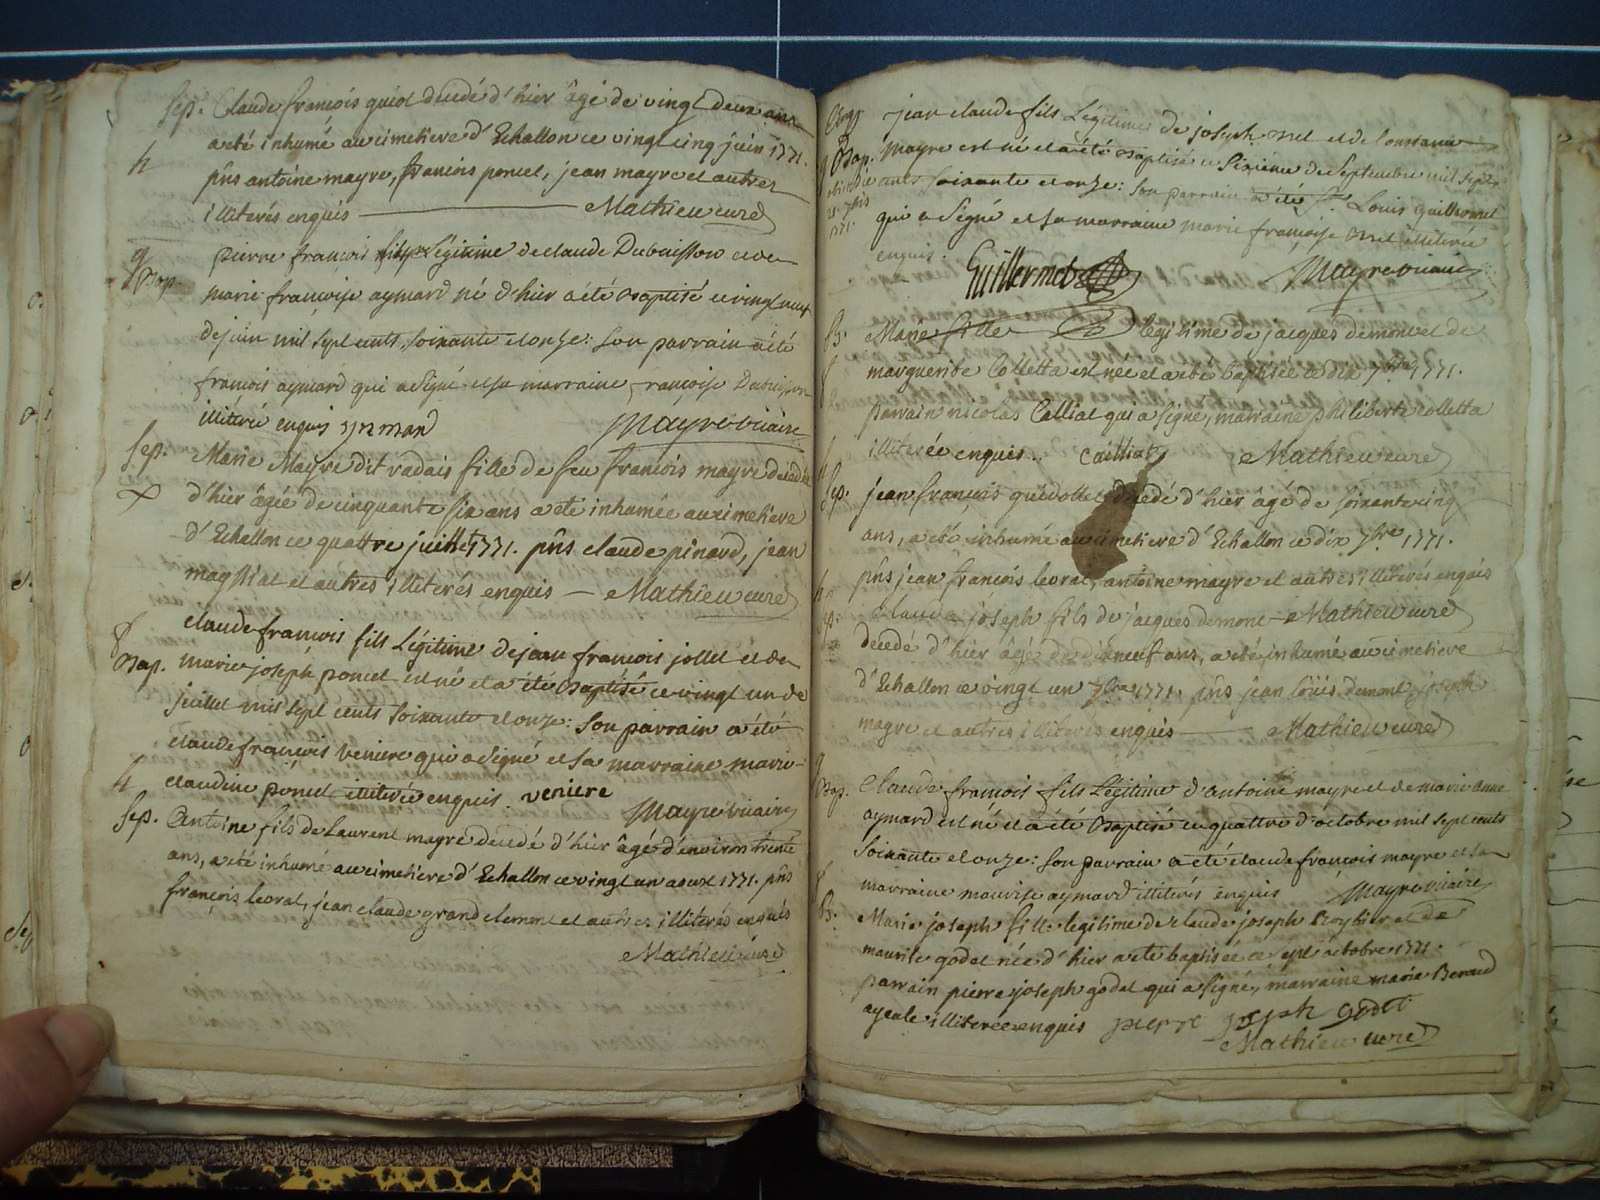 Sep. Claude françois guiot decedé d'hier âgé de vingt deux ans
a été inhumé au cimetiere d'Echallon ce vingt cinq juin 1771.
h
pñs antoine mayre, francois poncet, jean mayre et autres
illiterés enquis Mathieu curé
g
Bap.
pierre françois fils Légitime de claude Dubuisson et de
marie françoise aymard né d'hier a été Baptisé ce vingt neuf
de juin mil sept cents soixante et onze: son parrain a été
françois aymard qui a signé et sa marraine françoise Dubuisson
illiterée enquis Mayre vicaire
Sep. Marie Mayre dit radais fille de feu françois mayre decedée
d'hier âgée de cinquante six ans a été inhumée au cimetiere
d'Echallon ce quattre juillet 1771. pñs claude pinard, jean
maysiat et autres illiterés enquis — Mathieu curé
g
Bap.
claude francois fils Légitime de jean francois jollet et de
marie joseph poncet est né et a été Baptisé ce vingt un de
juillet mil sept cents soixante et onze: son parrain a été
claude françois veniere qui a signé et sa marraine marie
claudine poncet illiterée enquis. veniere
Mayre vicaire
h
Sep. Antoine fils de Laurent mayre decedé d'hier âgé d'environ trente
ans, a été inhumé au cimetiere d'Echallon ce vingt un aoust 1771. pñs
françois levrat, jean claude grand clement et autres illiterés enquis
Mathieu curé
jean claude fils Légitime de joseph nut et de Constance
Bap. mayre est né et a été Baptisé ce sixieme de Septembre mil sept
cents soixante et onze: son parrain a été Sr Louis guillermet
1771.
qui a signé et sa marraine marie françoise nut illiterée
enquis. Guillermet Mayre vicaire
B. Marie fille legitime de jacques demonet de
marguerite Colletta est née et a été baptisée ce dix 7bre 1771.
parrain nicolas Calliat qui a signé, marraine philiberte colletta
illiterée enquis.. cailliat Mathieu curé
Sep. jean françois decedé d'hier âgé de soixante cinq
ans, a été inhumé au cimetiere d'Echallon ce dix 7bre 1771.
pñs jean françois levrat, antoine mayre et autres illiterés enquis
Claude joseph fils de jacques demone Mathieu curé
decedé d'hier âgé de dix neuf ans, a été inhumé au cimetiere
d'Echallon ce vingt un 7bre 1771. pñs jean Loüis demone joseph
mayre et autres illiterés enquis Mathieu curé
g
Bap. Claude françois fils Légitime d'antoine mayre et de marie anne
aymard est né et a été Baptisé ce quattre d'octobre mil sept cents
soixante et onze: son parrain a été claude françois mayre et sa
marraine maurise aymard illiterés enquis Mayre vicaire
B. Marie joseph fille legitime de claude joseph Roybier et de
maurise godet née d'hier a été baptisée ce sept octobre 1771.
parrain pierre joseph godet qui a signé, marraine marie Beraud
ayeule illiterée enquis pierre joseph godet
Mathieu curé